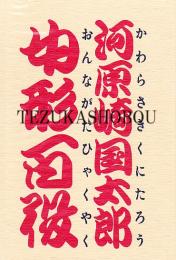 かわらさきくにたろう
河原崎国太郎
おんながたひゃくやく
女形百役
TEZUKASHOBOU